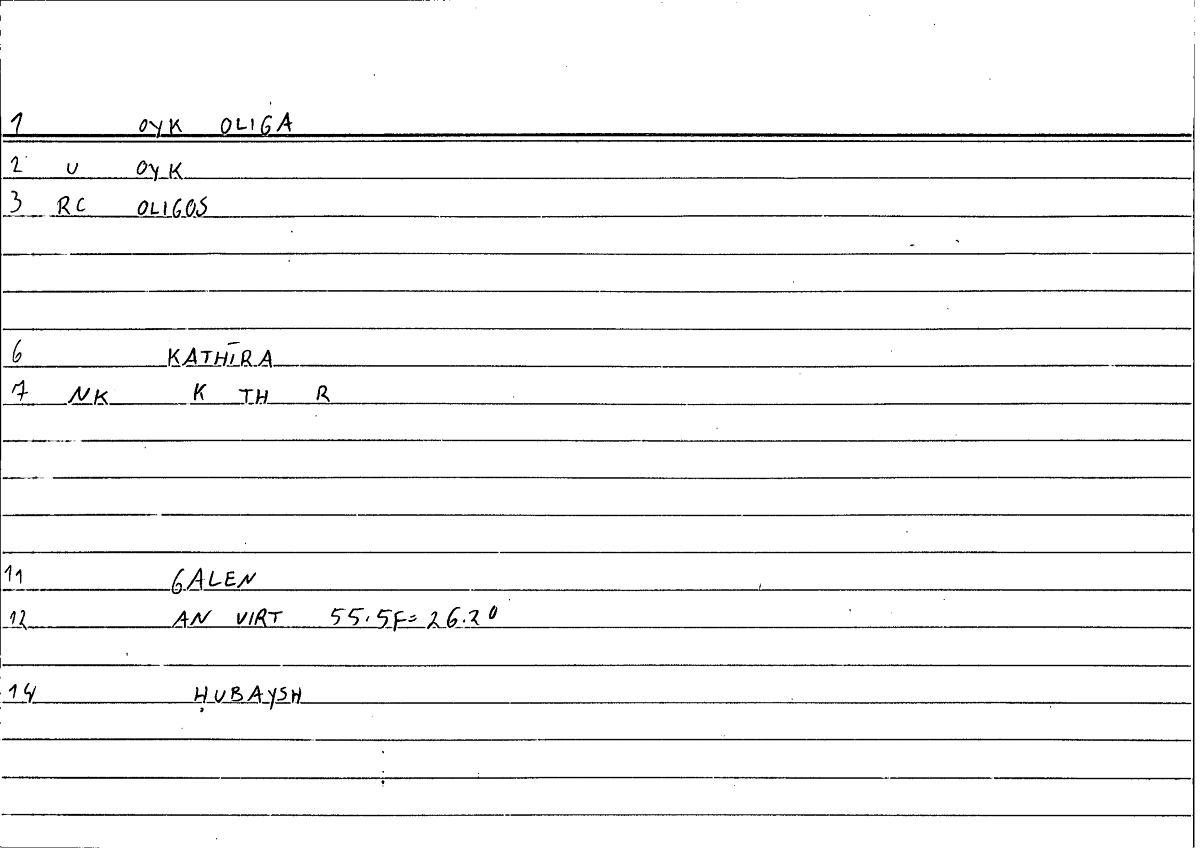 1 OYK OLIGA
2 U OYK
3 RC OLIGOS
6 KATHĪRA
7 NK K TH R
11 GALEN
12 AN VIRT 55.5F=26.20
14 ḤUBAYSH